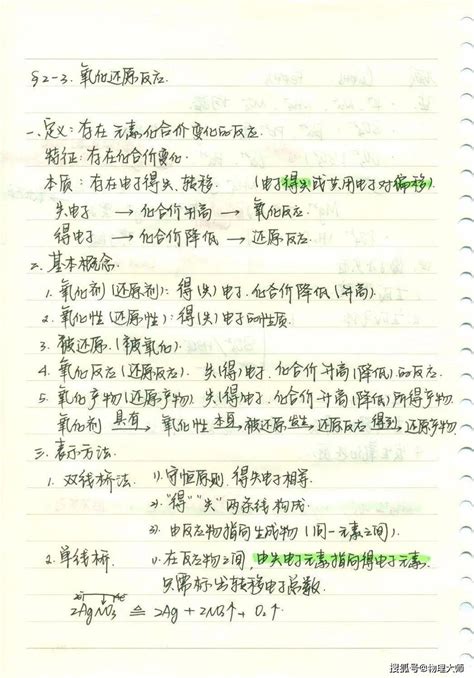 §2-3. 氧化还原反应.
一、定义：存在元素化合价变化的反应.
特征：存在化合价变化.
本质：存在电子得失、转移. (电子得失或共用电子对偏移).
失电子 → 化合价升高 → 氧化反应.
得电子 → 化合价降低 → 还原反应.
二、基本概念.
1. 氧化剂(还原剂)：得(失)电子.化合价降低(升高).
2. 氧化性(还原性)：得(失)电子的性质.
3. 被还原.(被氧化).
4. 氧化反应(还原反应). 失(得)电子.化合价升高(降低)的反应.
5. 氧化产物(还原产物). 失(得)电子.化合价升高(降低)所得产物.
氧化剂 具有→ 氧化性 被还原 发生→ 还原反应 得到→ 还原产物.
三、表示方法.
1. 双线桥法. 1). 守恒原则.得失电子相等.
2). "得""失"两条线构成.
3). 由反应物指向生成物(同一元素之间).
2. 单线桥. 1). 在反应物之间,由失电子元素指向得电子元素.
只需标出转移电子总数.
2AgNO3 ≜ 2Ag + 2NO2↑ + O2↑.
搜狐号@物理大师